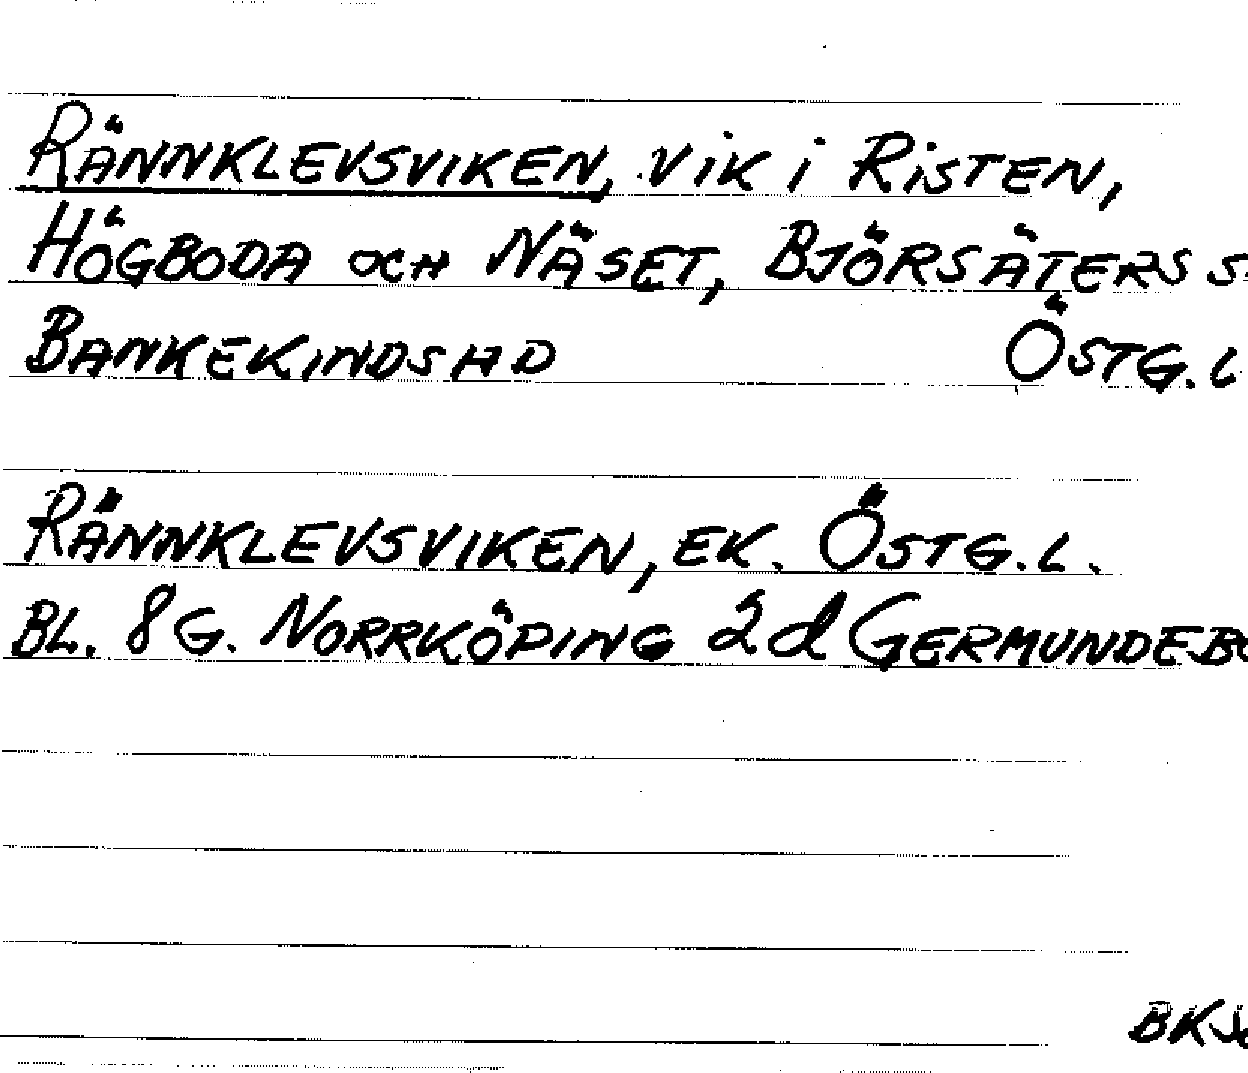 RÄNNKLEVSVIKEN, VIK I RISTEN,
HÖGBODA OCH NÄSET, BJÖRSÄTERS S
BANKEKINDS HD ÖSTG. L
RÄNNKLEVSVIKEN, EK. ÖSTG. L.
BL. 8 G. NORRKÖPING 2d GERMUNDEBO